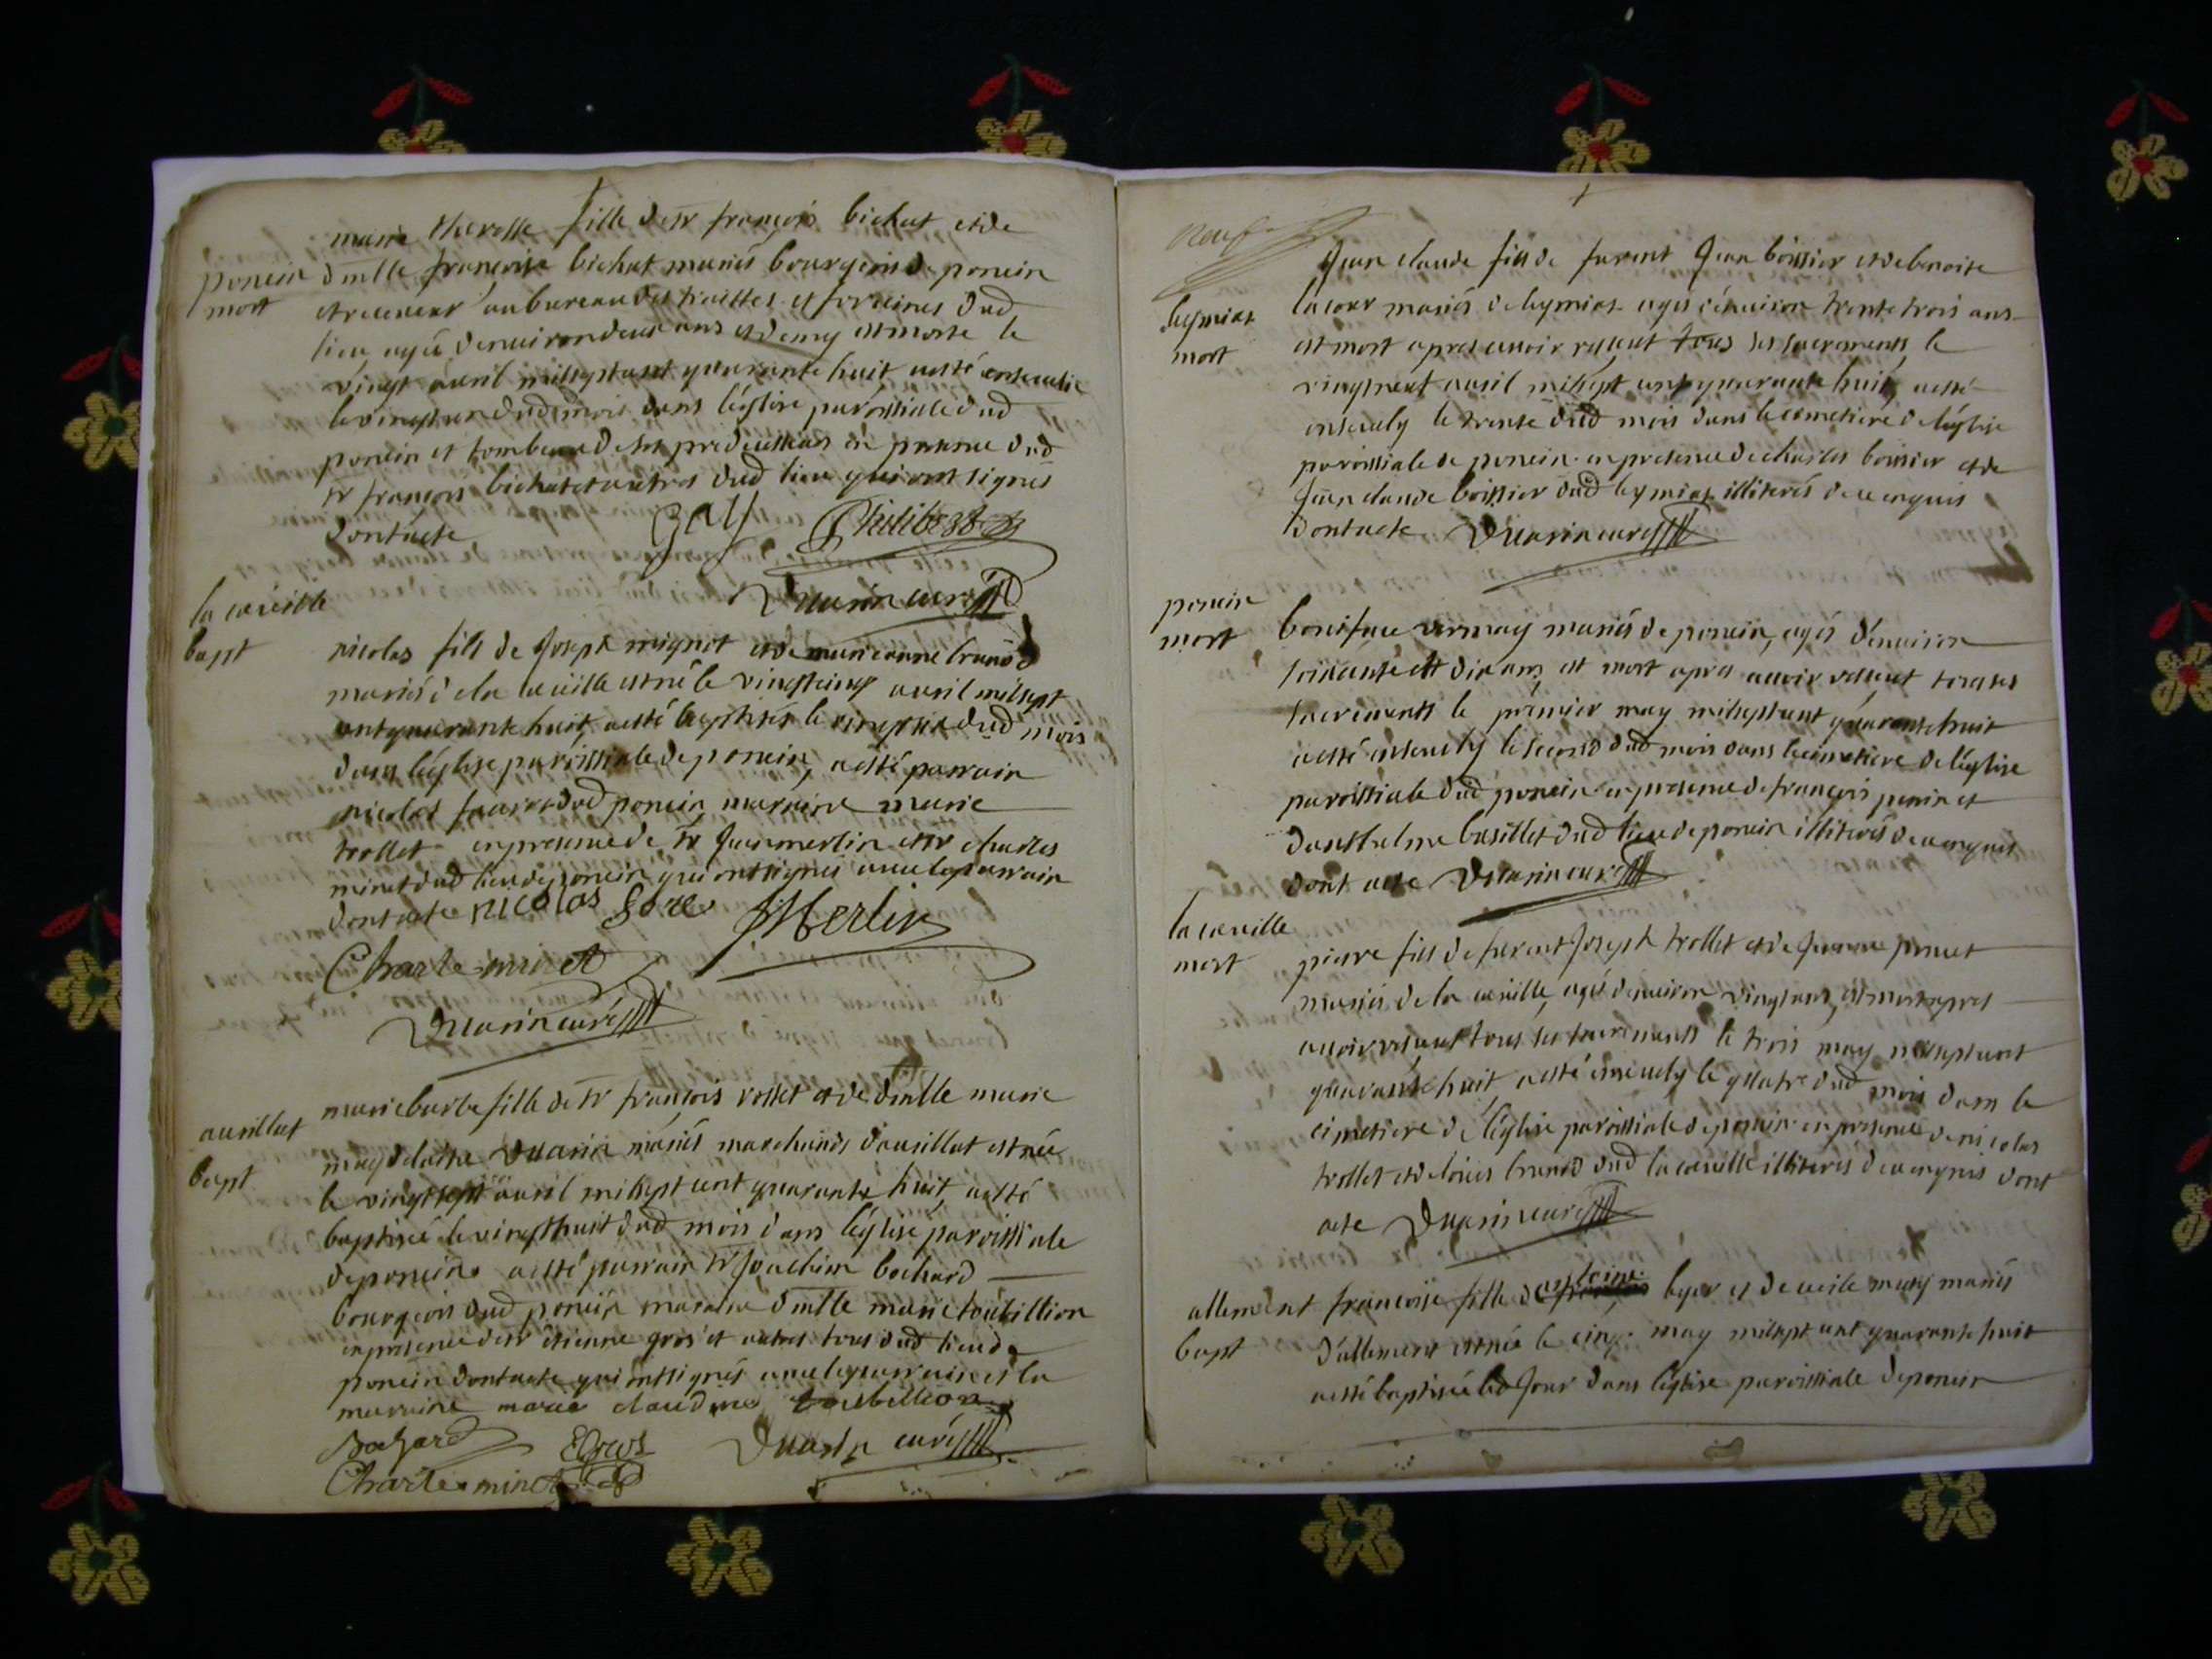 marie therese fille de sr françois bichat et de
poncin dmlle françoise bichat mariés bourgeois de poncin
mort et receveur au bureau des traittes et foraines dud
lieu agée denviron deux ans et demy est morte le
vingt auril mil sept cent quarante huit, a esté enseuelie
le vingt un dud mois dans léglise paroissiale dud
poncin et tombeau de ses predecesseurs en presence dud
sr françois bichat et autres dud lieu qui ont signés
dont acte Philibert
Duarin curé
la cueille
bapt nicolas fils de Joseph mignot et de marieanne brund
mariés de la cueille est né le vingt cinq auril mil sept
cent quarante huit, a esté baptisés le vingt six dud mois
dans léglise paroissiale de poncin, a esté parrain
nicolas dud poncin, marraine marie
trollet en presence de sr Jean merlin et sr charles
minet dud lieu de poncin qui ont signés auec le parrain
dont acte nicolas JMerlin
Charle minet
Duarin curé
marie barbe fille de sr françois rosset et de dmlle marie
auvillat magdelaine Duarin mariés marchands dauvillat est née
bapt le vingt sept auril mil sept cent quarante huit, a esté
baptisée le vingt huit dud mois dans léglise paroissiale
de poncin a esté parrain sr Joachim bochard
bourgeois dud poncin maraine dmlle marie toubillion
en presence de sr étienne gros et autres tous dud lieu de
poncin dont acte qui ont signés auec le parrain et la
marraine marie claudine toubillion
Bochard EGros Duarin curé
Charle minet
neuf
Jean claude fils de furent Jean boissier et de benoite
leymiat lacour mariés de leymiat agés d'enuiron trente trois ans
mort est mort apres auoir reseut tous ses sacrements le
vingt neuf auril mil sept cent quarante huit, a esté
enseuely le trente dud mois dans le cemetiere de léglise
paroissiale de poncin en presence de charles boissier et de
Jean claude boissier dud leymiat illiterés de ce enquis
dont acte Duarin curé
poncin
mort boniface vermay mariés de poncin, agés d'enuiron
soixante et dix ans, est mort apres auoir reseut tous ses
sacrements le premier may mil sept cent quarante huit
a esté enseuely le second dud mois dans le cimetiere de léglise
paroissiale dud poncin en presence de françois perrin et
danthelme basillet dud lieu de poncin illiterés de ce enquis
dont acte Duarin curé
la cueille
mort pierre fils de furent Joseph trollet et de Jeanne poncet
mariés de la cueille, agés denuiron vingt ans, est mort apres
auoir reseut tous ses sacrements le trois may mil sept cent
quarante huit, a esté enseuely le quatre dud mois dans le
cimetiere de léglise paroissiale de poncin en presence de nicolas
trollet et de loüis brund dud la cueille illiterés de ce enquis dont
acte Duarin curé
allement françoise fille d'antoine beyer et de cecile mury mariés
bapt d'allement est née le cinq may mil sept cent quarante huit
a esté baptisée led Jour dans léglise paroissiale de poncin